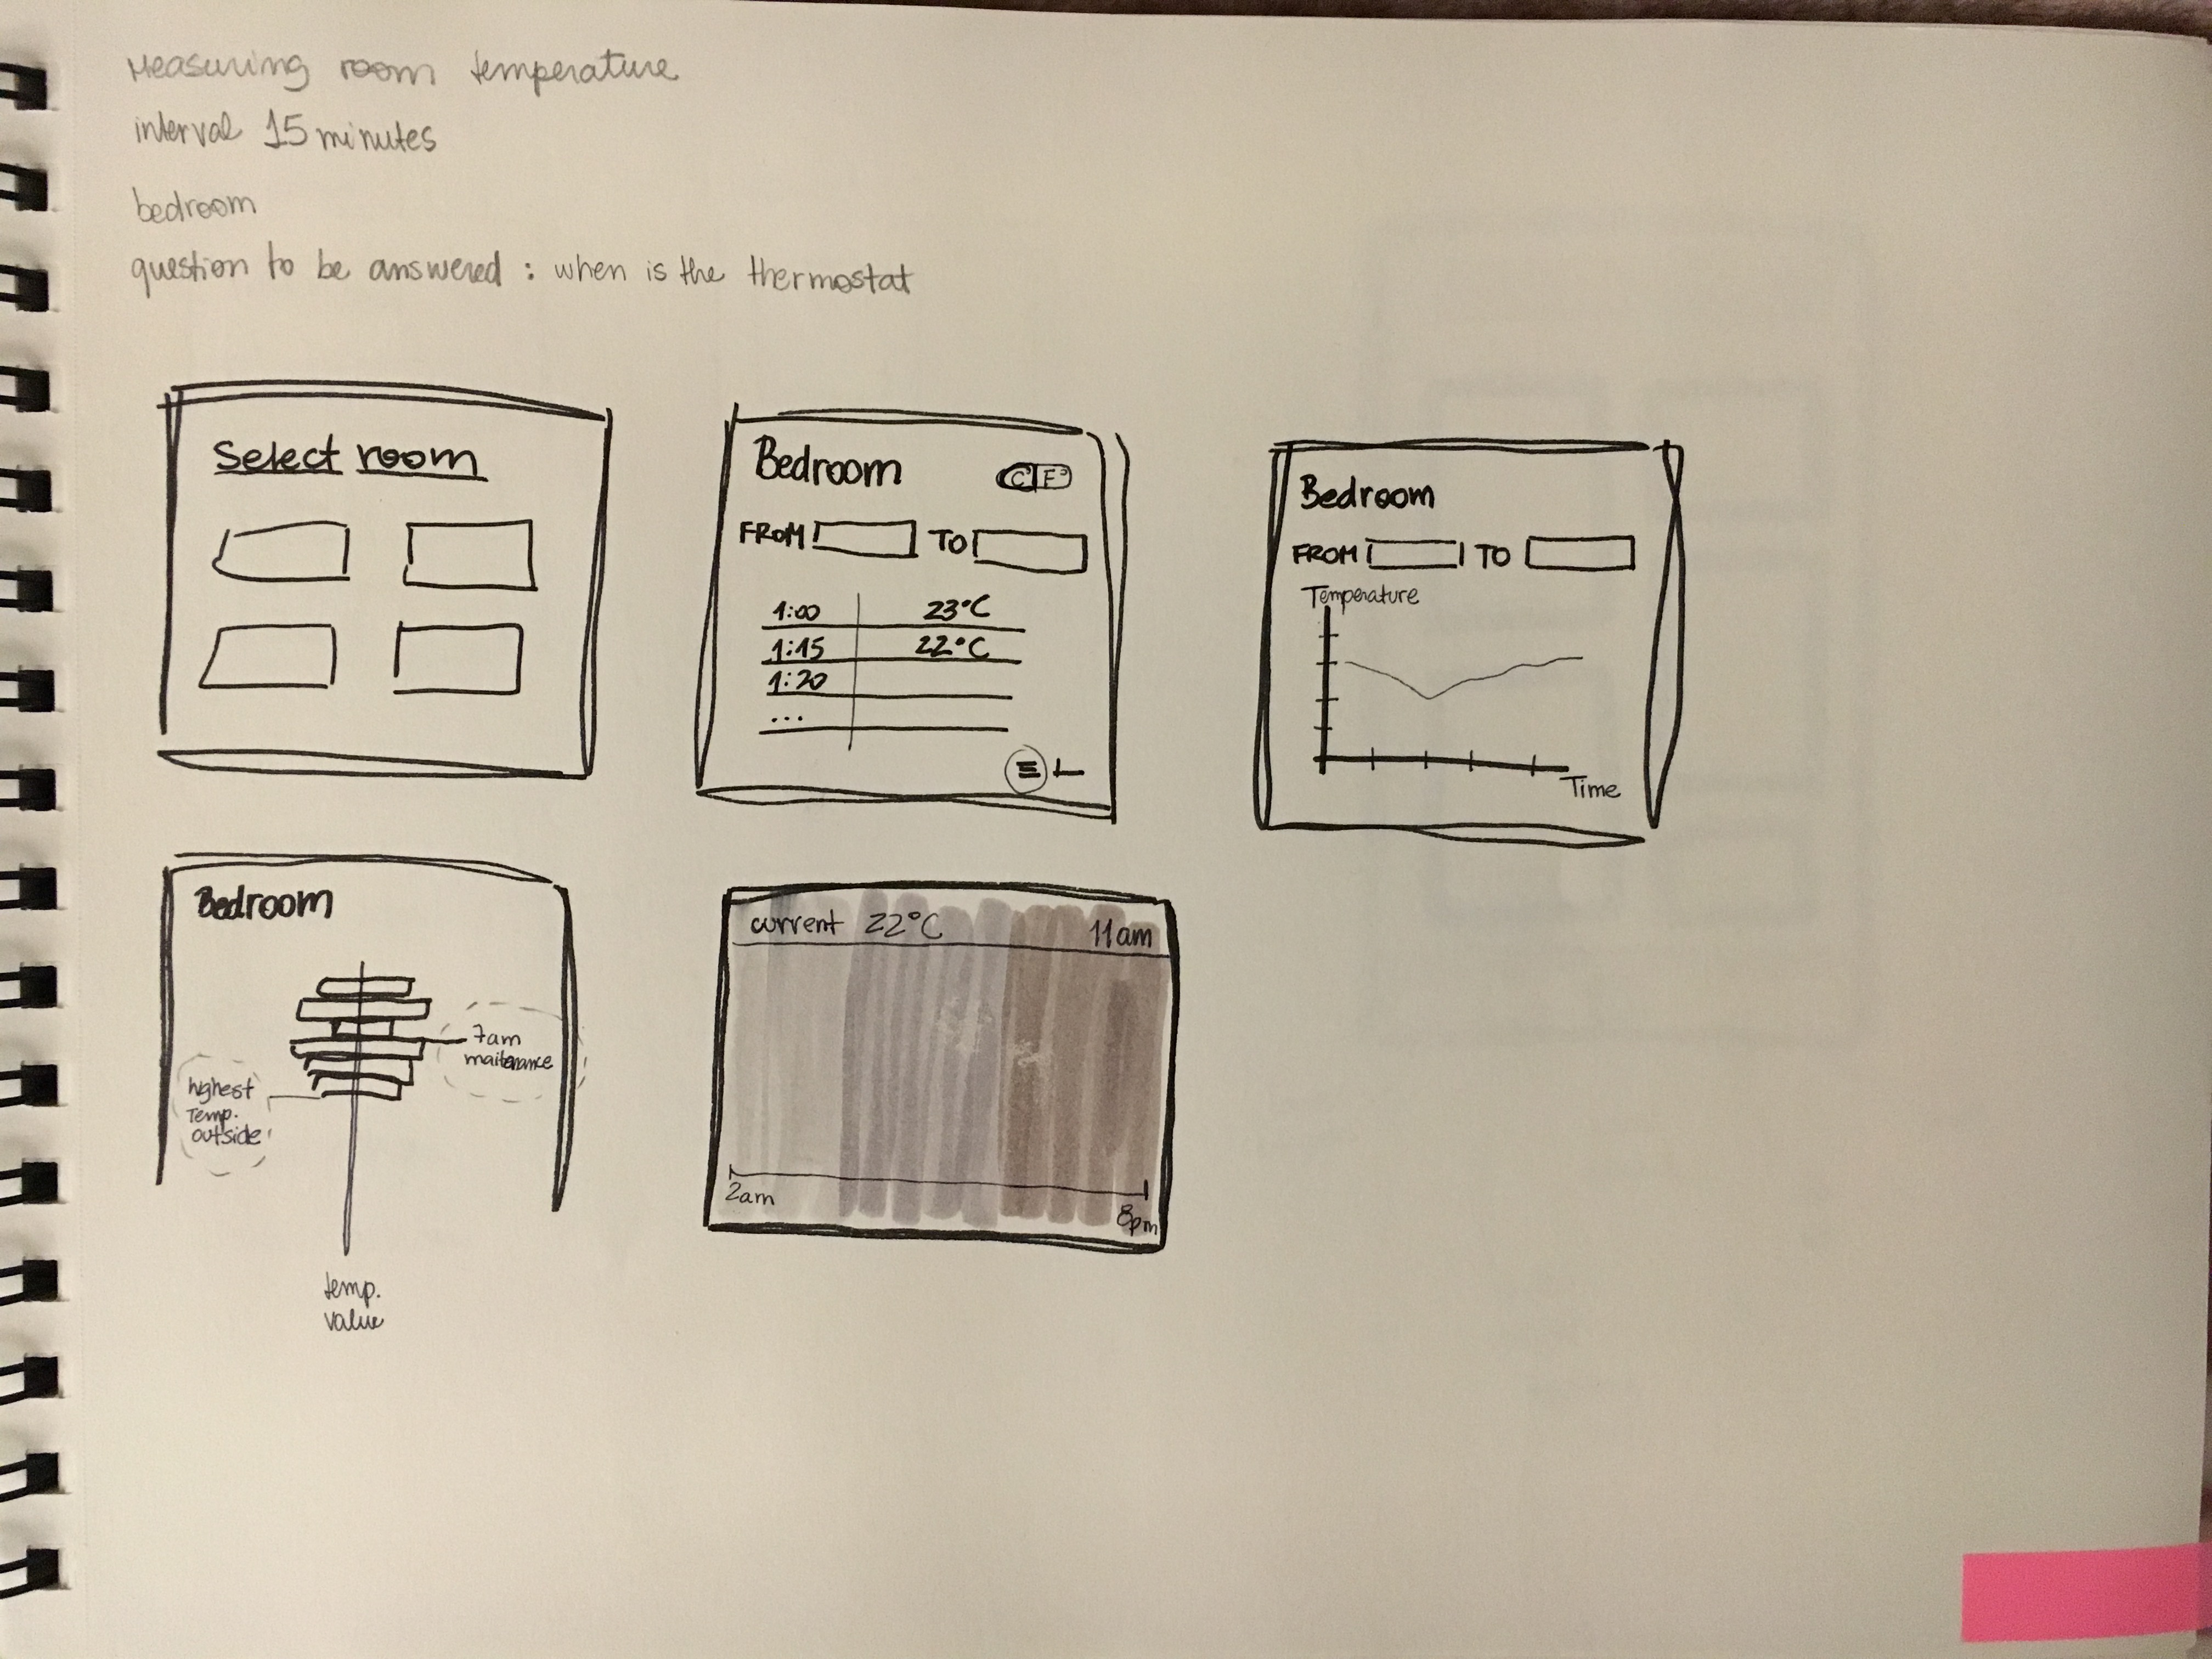 Measuring room temperature
interval 15 minutes
bedroom
question to be answered : when is the thermostat
Select room
Bedroom
C F°
FROM TO
1:00 23°C
1:15 22°C
1:20
...
Bedroom
FROM TO
Temperature
Time
Bedroom
7am
maitenance
highest
Temp.
outside
temp.
value
current 22°C 11am
2am
8pm